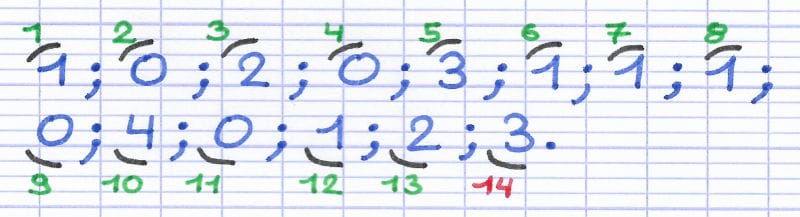 1 2 3 4 5 6 7 8
1; 0; 2; 0; 3; 1; 1; 1;
0; 4; 0; 1; 2; 3.
9 10 11 12 13 14